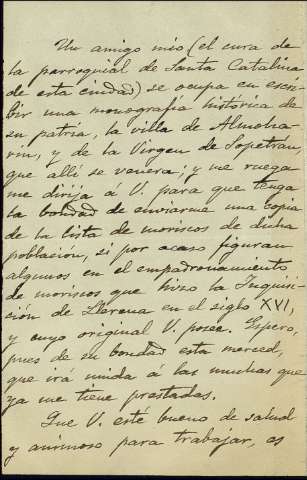 Un amigo mio (el cura de
la parroquial de Santa Catalina
de esta ciudad) se ocupa en escri-
bir una monografía histórica de
su patria, la villa de Almoha-
rin, y de la Virgen de Sopetrán,
que allí se venera; y me ruega
me dirija á V. para que tenga
la bondad de enviarme una copia
de la lista de moriscos de dicha
poblacion, si por acaso figuran
algunos en el empadronamiento
de moriscos que hizo la Inquisi-
sión de Llerena en el siglo XVI,
y cuyo original V. posee. Espero,
pues de su bondad esta merced,
que irá unida á las muchas que
ya me tiene prestadas.
Que V. esté bueno de salud
y animoso para trabajar, es